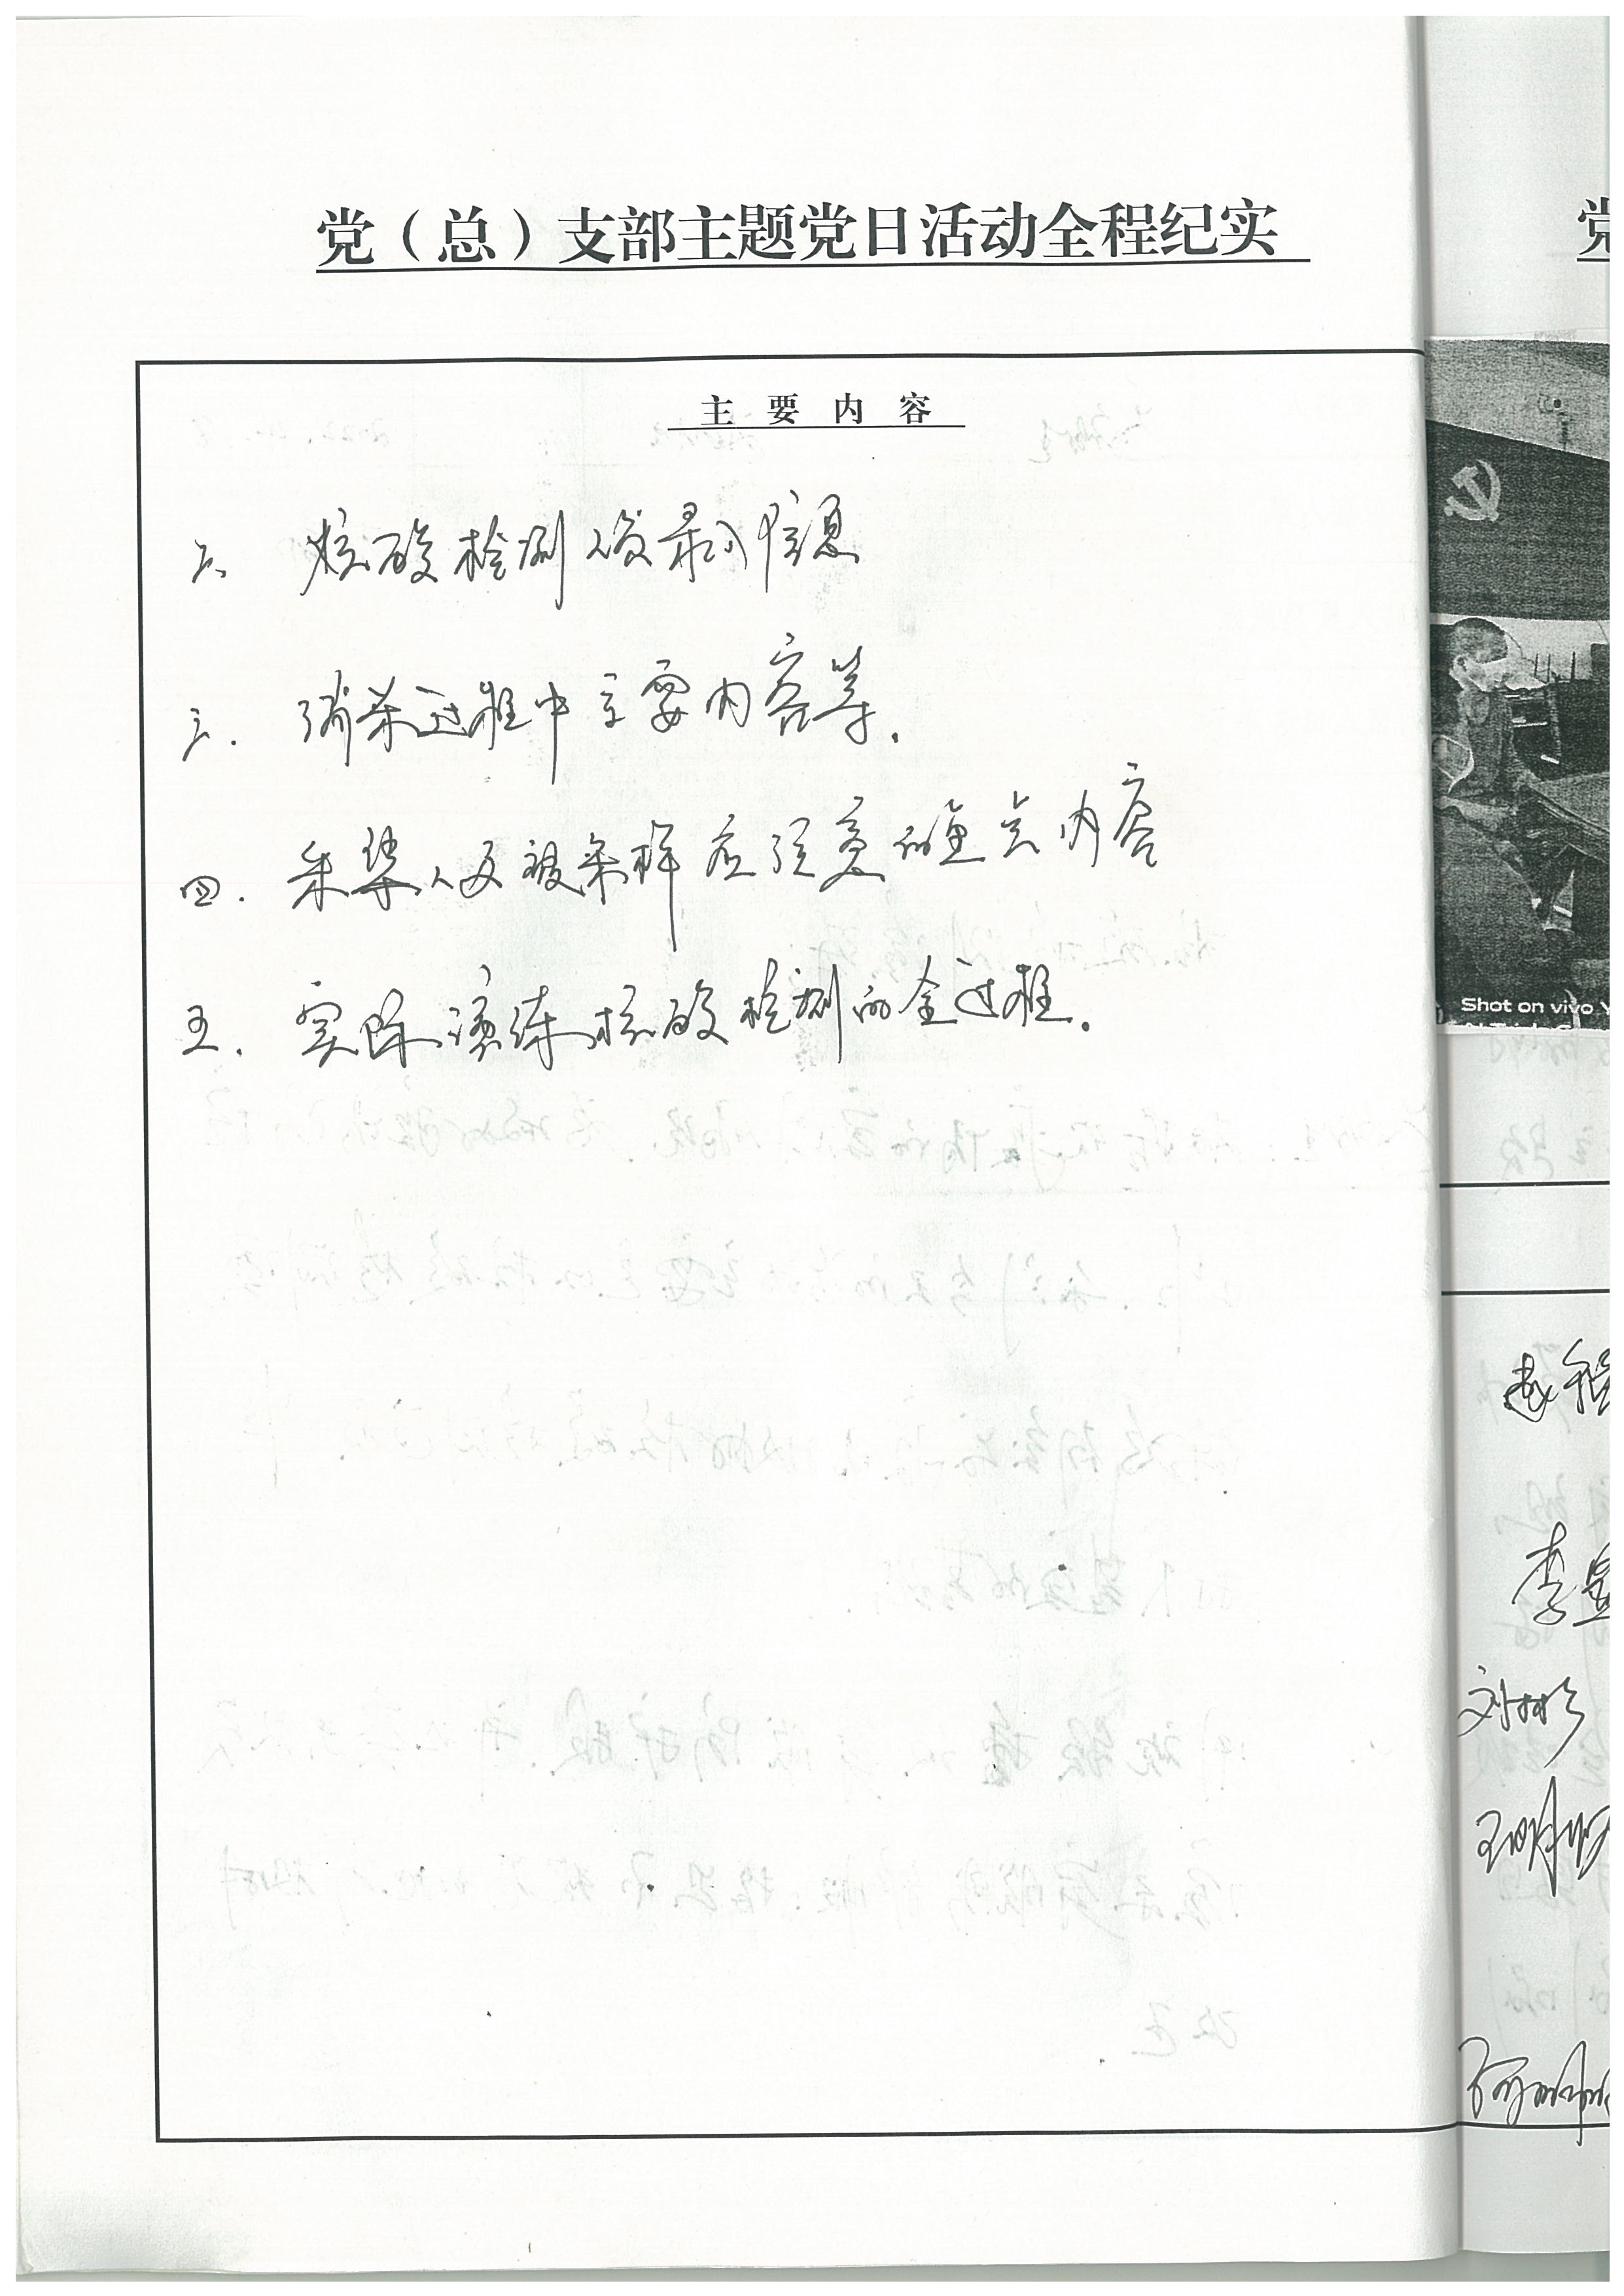 党（总）支部主题党日活动全程纪实
主要内容
二、核酸检测人员录入信息
三.消杀过程中主要内容等.
四.采集人及被采样应注意的重点内容
五.实际演练核酸检测的全过程.
党
Shot on vivo Y
李
刘彬
王明